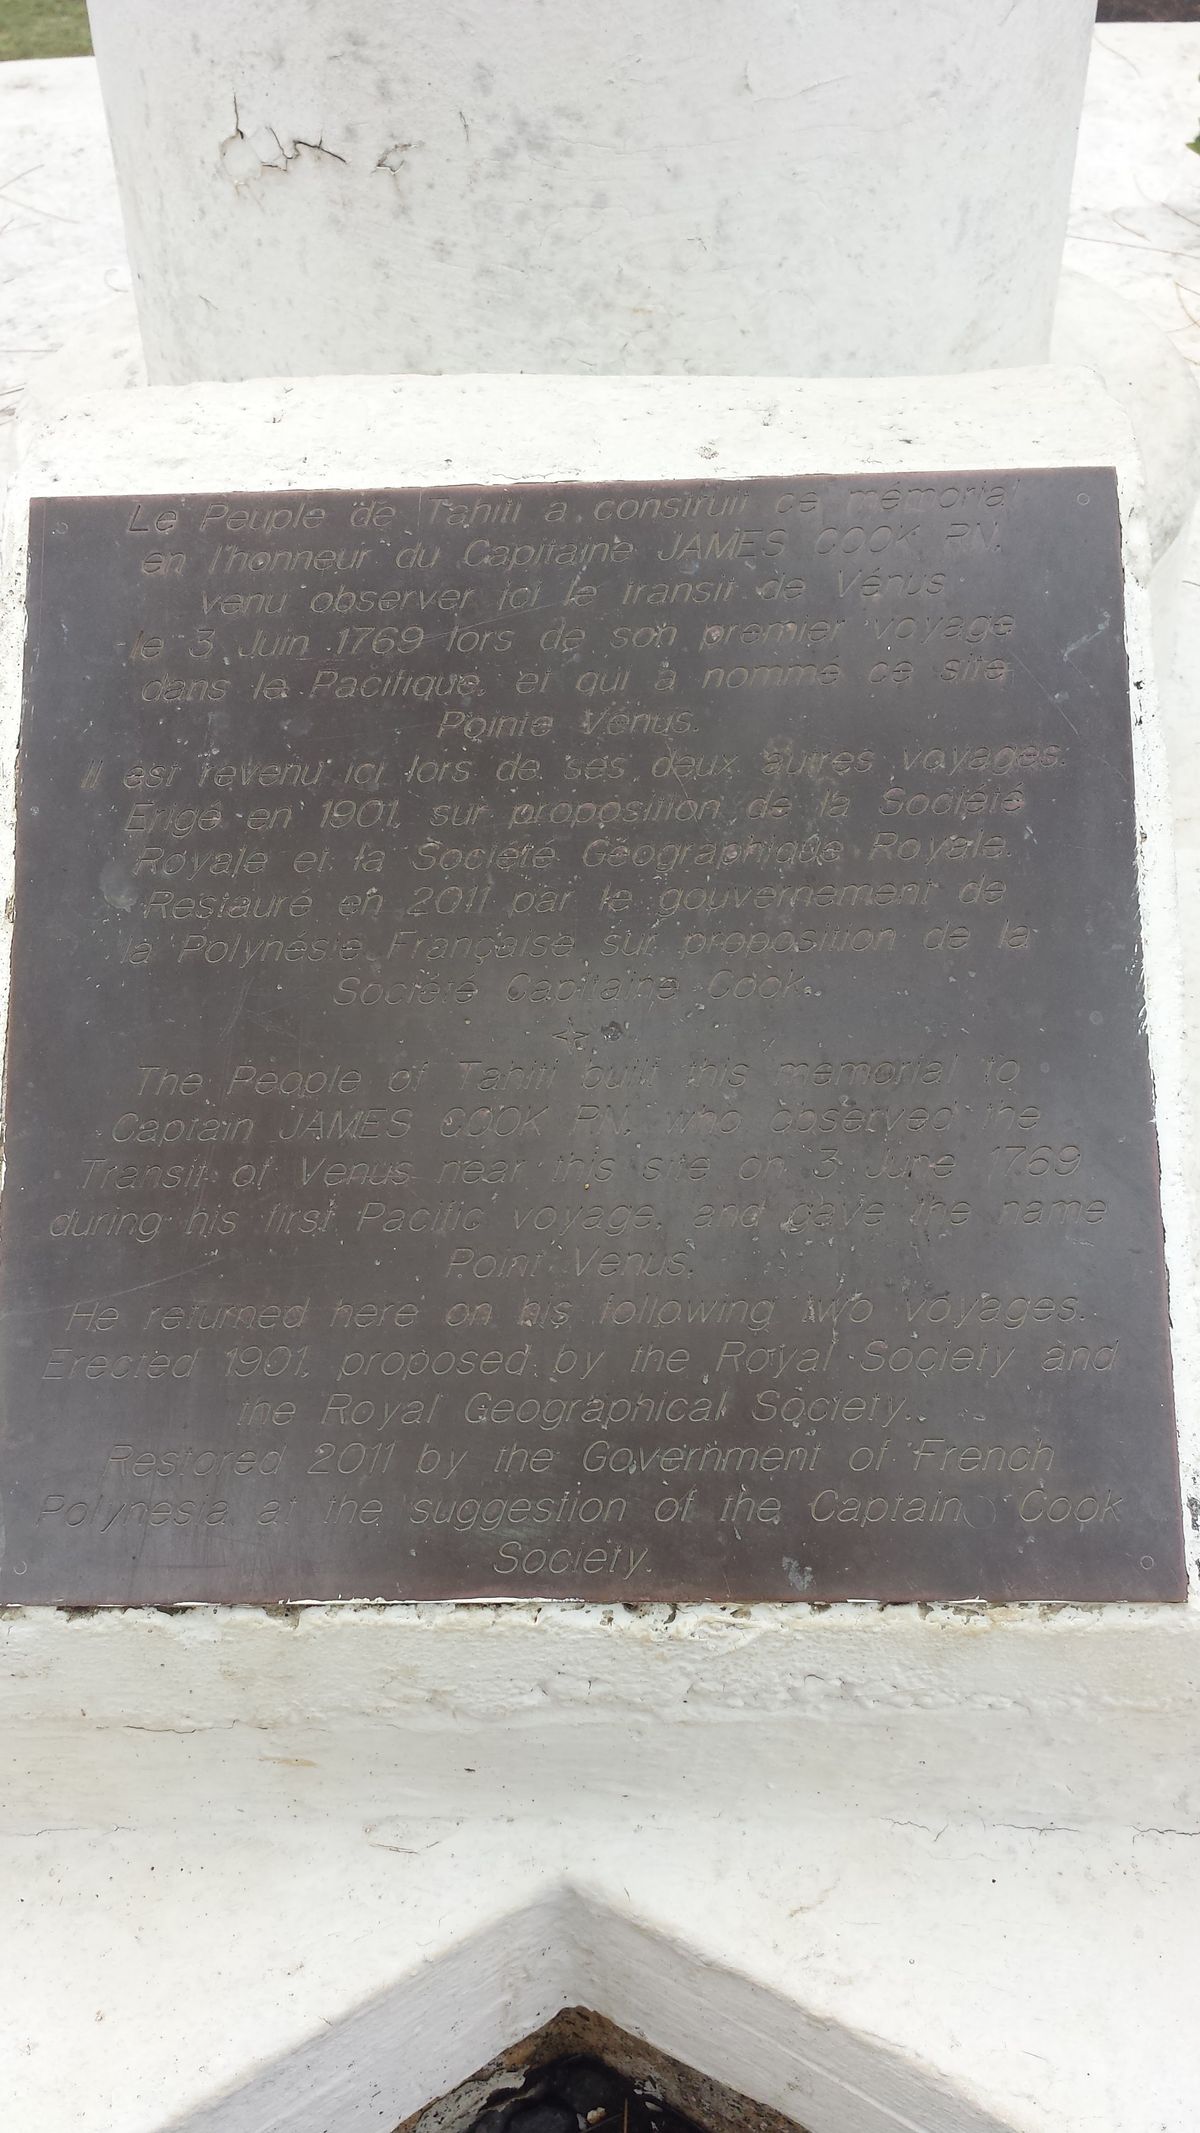 Le Peuple de Tahiti a construit ce mémorial
en l'honneur du Capitaine JAMES COOK RN.
venu observer ici le transit de Vénus
le 3 Juin 1769 lors de son premier voyage
dans le Pacifique, et qui a nommé ce site
Pointe Vénus.
Il est revenu ici lors de ses deux autres voyages.
Erigé en 1901, sur proposition de la Société
Royale et la Société Géographique Royale.
Restauré en 2011 par le gouvernement de
la Polynésie Française sur proposition de la
Société Capitaine Cook.
The People of Tahiti built this memorial to
Captain JAMES COOK RN. who observed the
Transit of Venus near this site on 3 June 1769
during his first Pacific voyage, and gave the name
Point Venus.
He returned here on his following two voyages.
Erected 1901, proposed by the Royal Society and
the Royal Geographical Society.
Restored 2011 by the Government of French
Polynesia at the suggestion of the Captain Cook
Society.